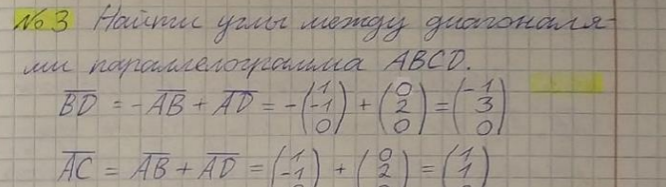 №3 Найти углы между диагоналя-
ми параллелограмма ABCD.
BD = -AB + AD = -(1 -1 0) + (0 2 0) = (-1 3 0)
AC = AB + AD = (1 -1 + (0 2 = (1 1